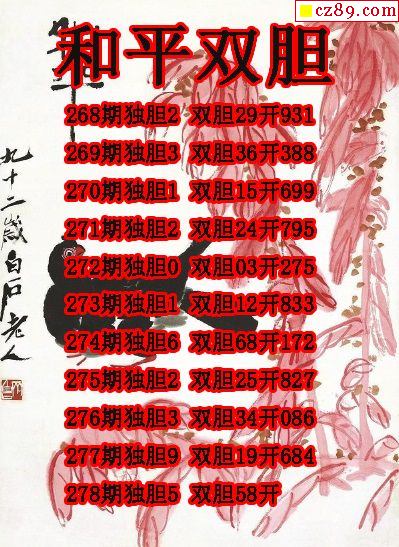 cz89.com
和平双胆
268期独胆2 双胆29开931
269期独胆3 双胆36开388
270期独胆1 双胆15开699
271期独胆2 双胆24开795
272期独胆0 双胆03开275
273期独胆1 双胆12开833
274期独胆6 双胆68开172
275期独胆2 双胆25开827
276期独胆3 双胆34开086
277期独胆9 双胆19开684
278期独胆5 双胆58开
九十二岁白石老人